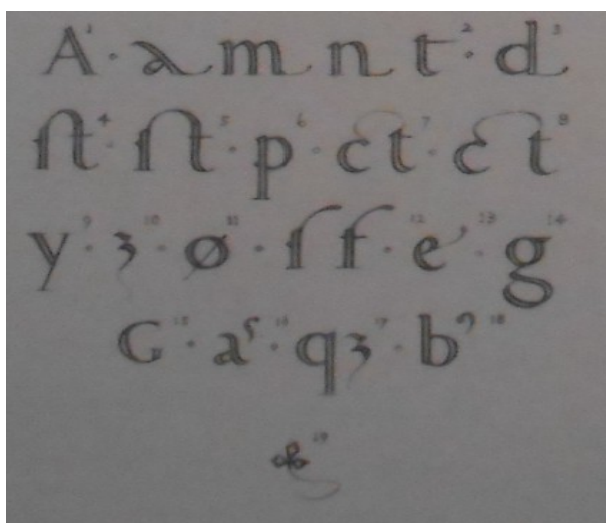 A¹ · a m n t² · d³
ſt⁴ · ſt⁵ · p⁶ · ct⁷ · ct⁸
y⁹ · ꝫ¹⁰ · ø¹¹ · ſ f · ¹² e ¹³ · g¹⁴
G¹⁵ · a¹⁶ · qꝫ¹⁷ · b⁹ ¹⁸
¹⁹